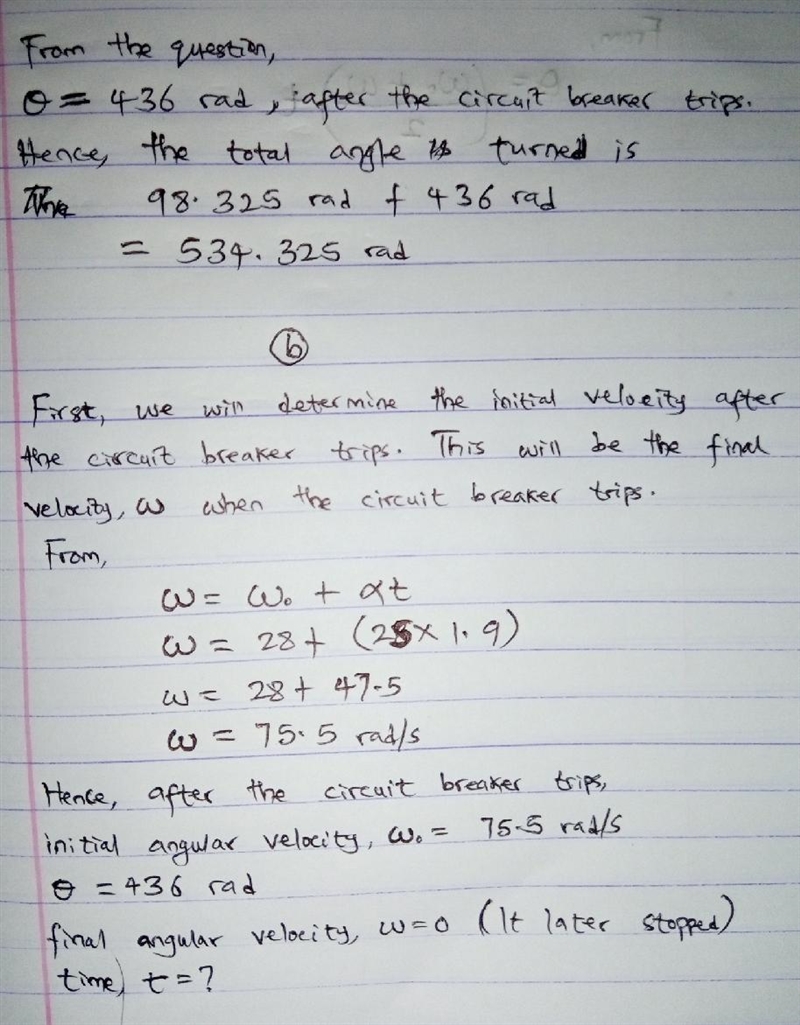 From the question,
θ = 436 rad, after the circuit breaker trips.
Hence, the total angle turned is
98.325 rad + 436 rad
= 534.325 rad
(b)
First, we will determine the initial velocity after
the circuit breaker trips. This will be the final
velocity, ω when the circuit breaker trips.
From,
ω = ω₀ + αt
ω = 28 + (25 × 1.9)
ω = 28 + 47.5
ω = 75.5 rad/s
Hence, after the circuit breaker trips,
initial angular velocity, ω₀ = 75.5 rad/s
θ = 436 rad
final angular velocity, ω = 0 (It later stopped)
time, t = ?